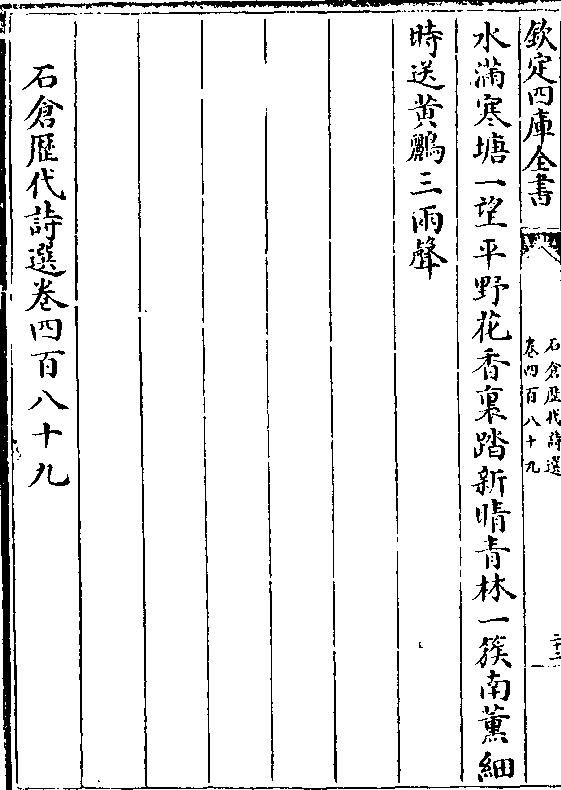 欽定四庫全書
石倉歷代詩選
卷四百八十九
二十二
水滿寒塘一望平野花香裏踏新晴青林一簇南薰細
時送黄鸝三兩聲
石倉歷代詩選卷四百八十九